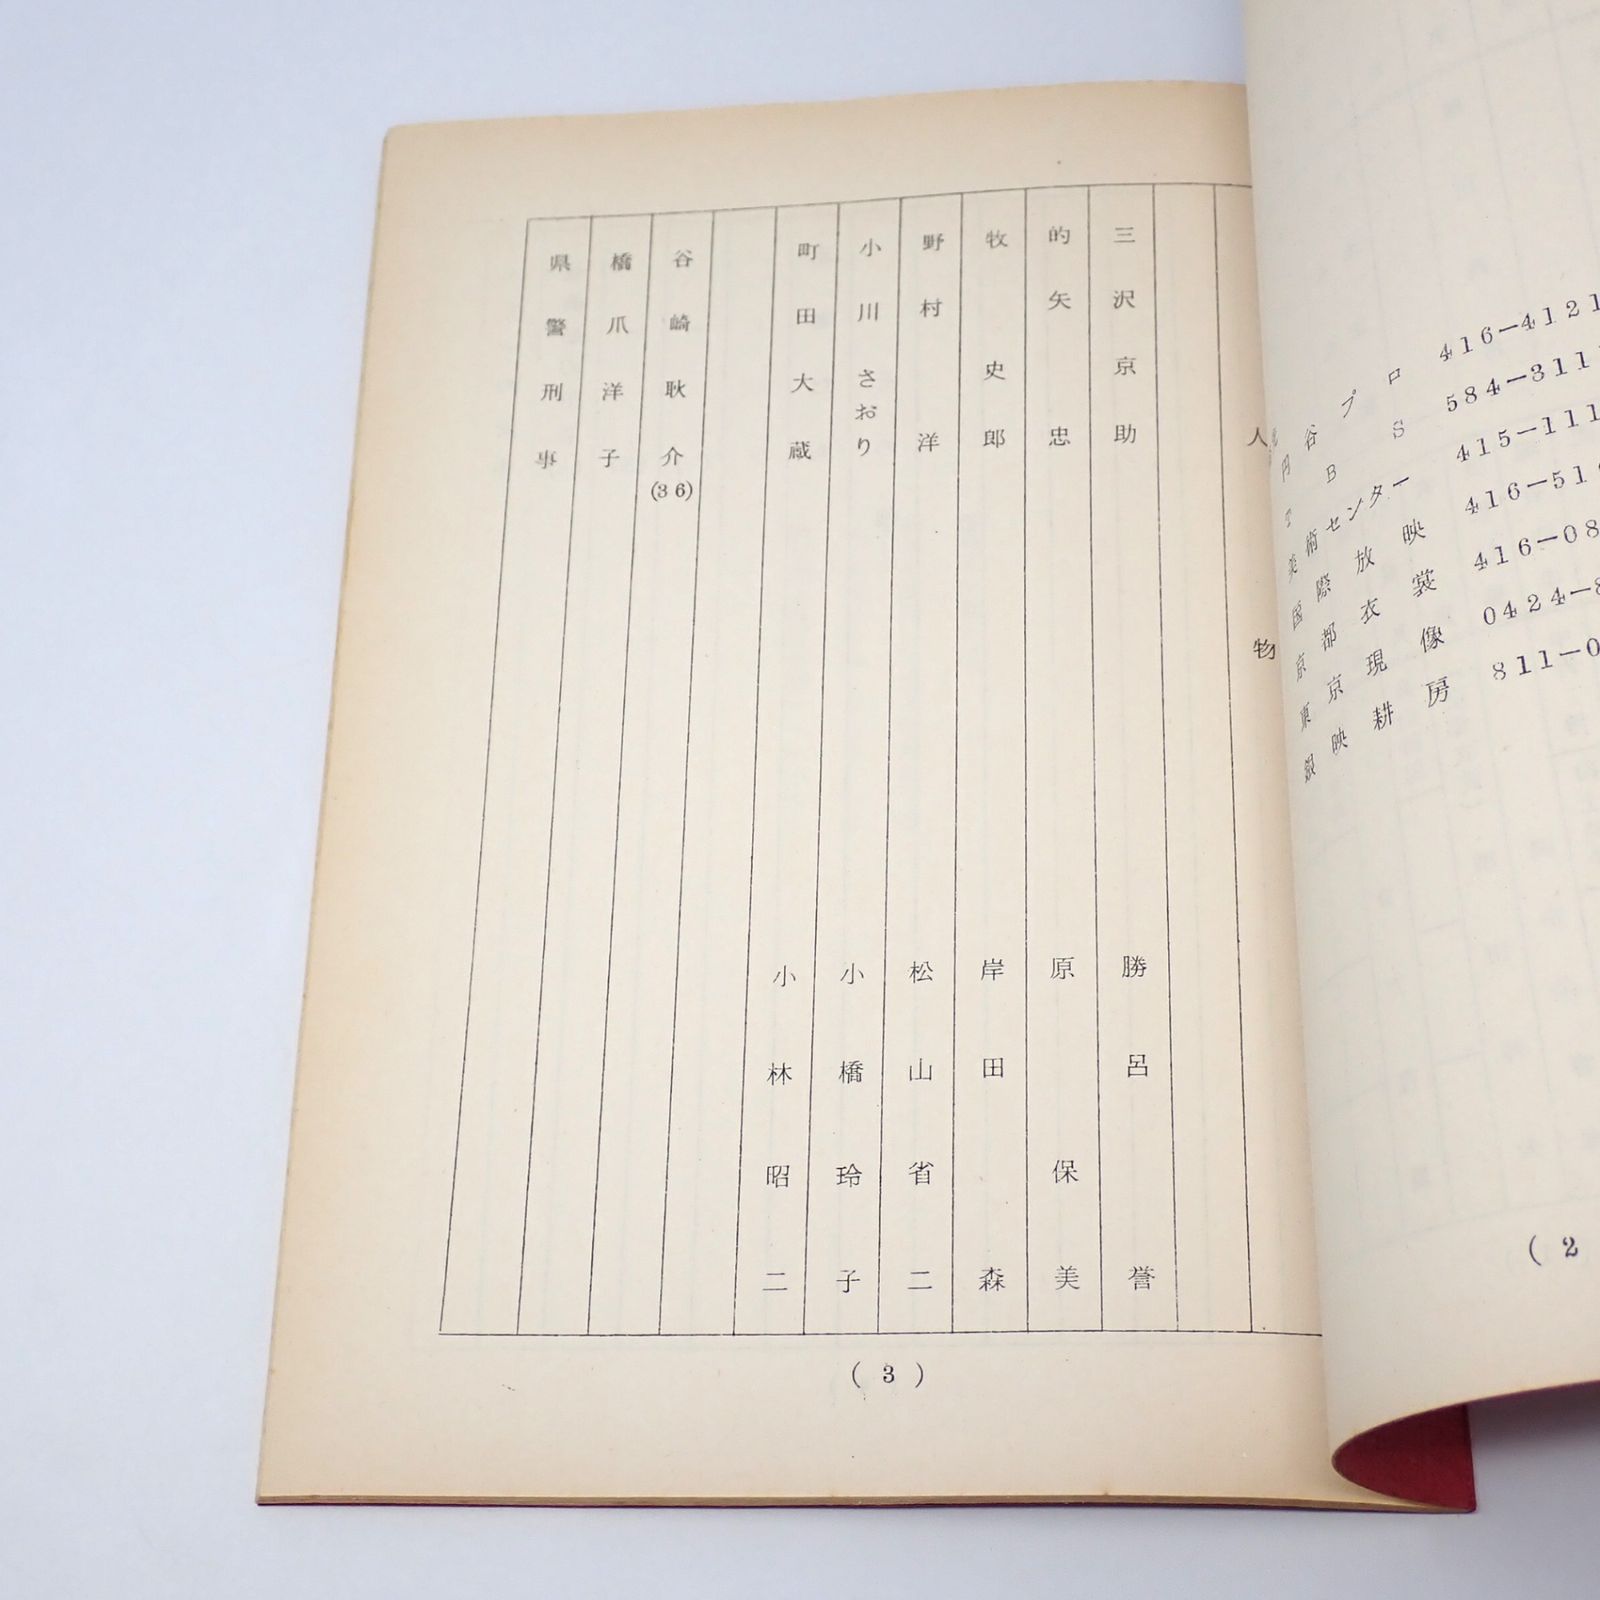 人物
三沢京助 勝呂誉
的矢忠 原保美
牧史郎 岸田森
野村洋 松山省二
小川さおり 小橋玲子
町田大蔵 小林昭二
谷崎耿介(36)
橋爪洋子
県警刑事
(3)
円谷プロ 416-4121
BS 584-311
美術センター 415-111
国際放映 416-51
京都衣裳 416-08
東京現像 0424-8
銀映耕房 811-0
(2